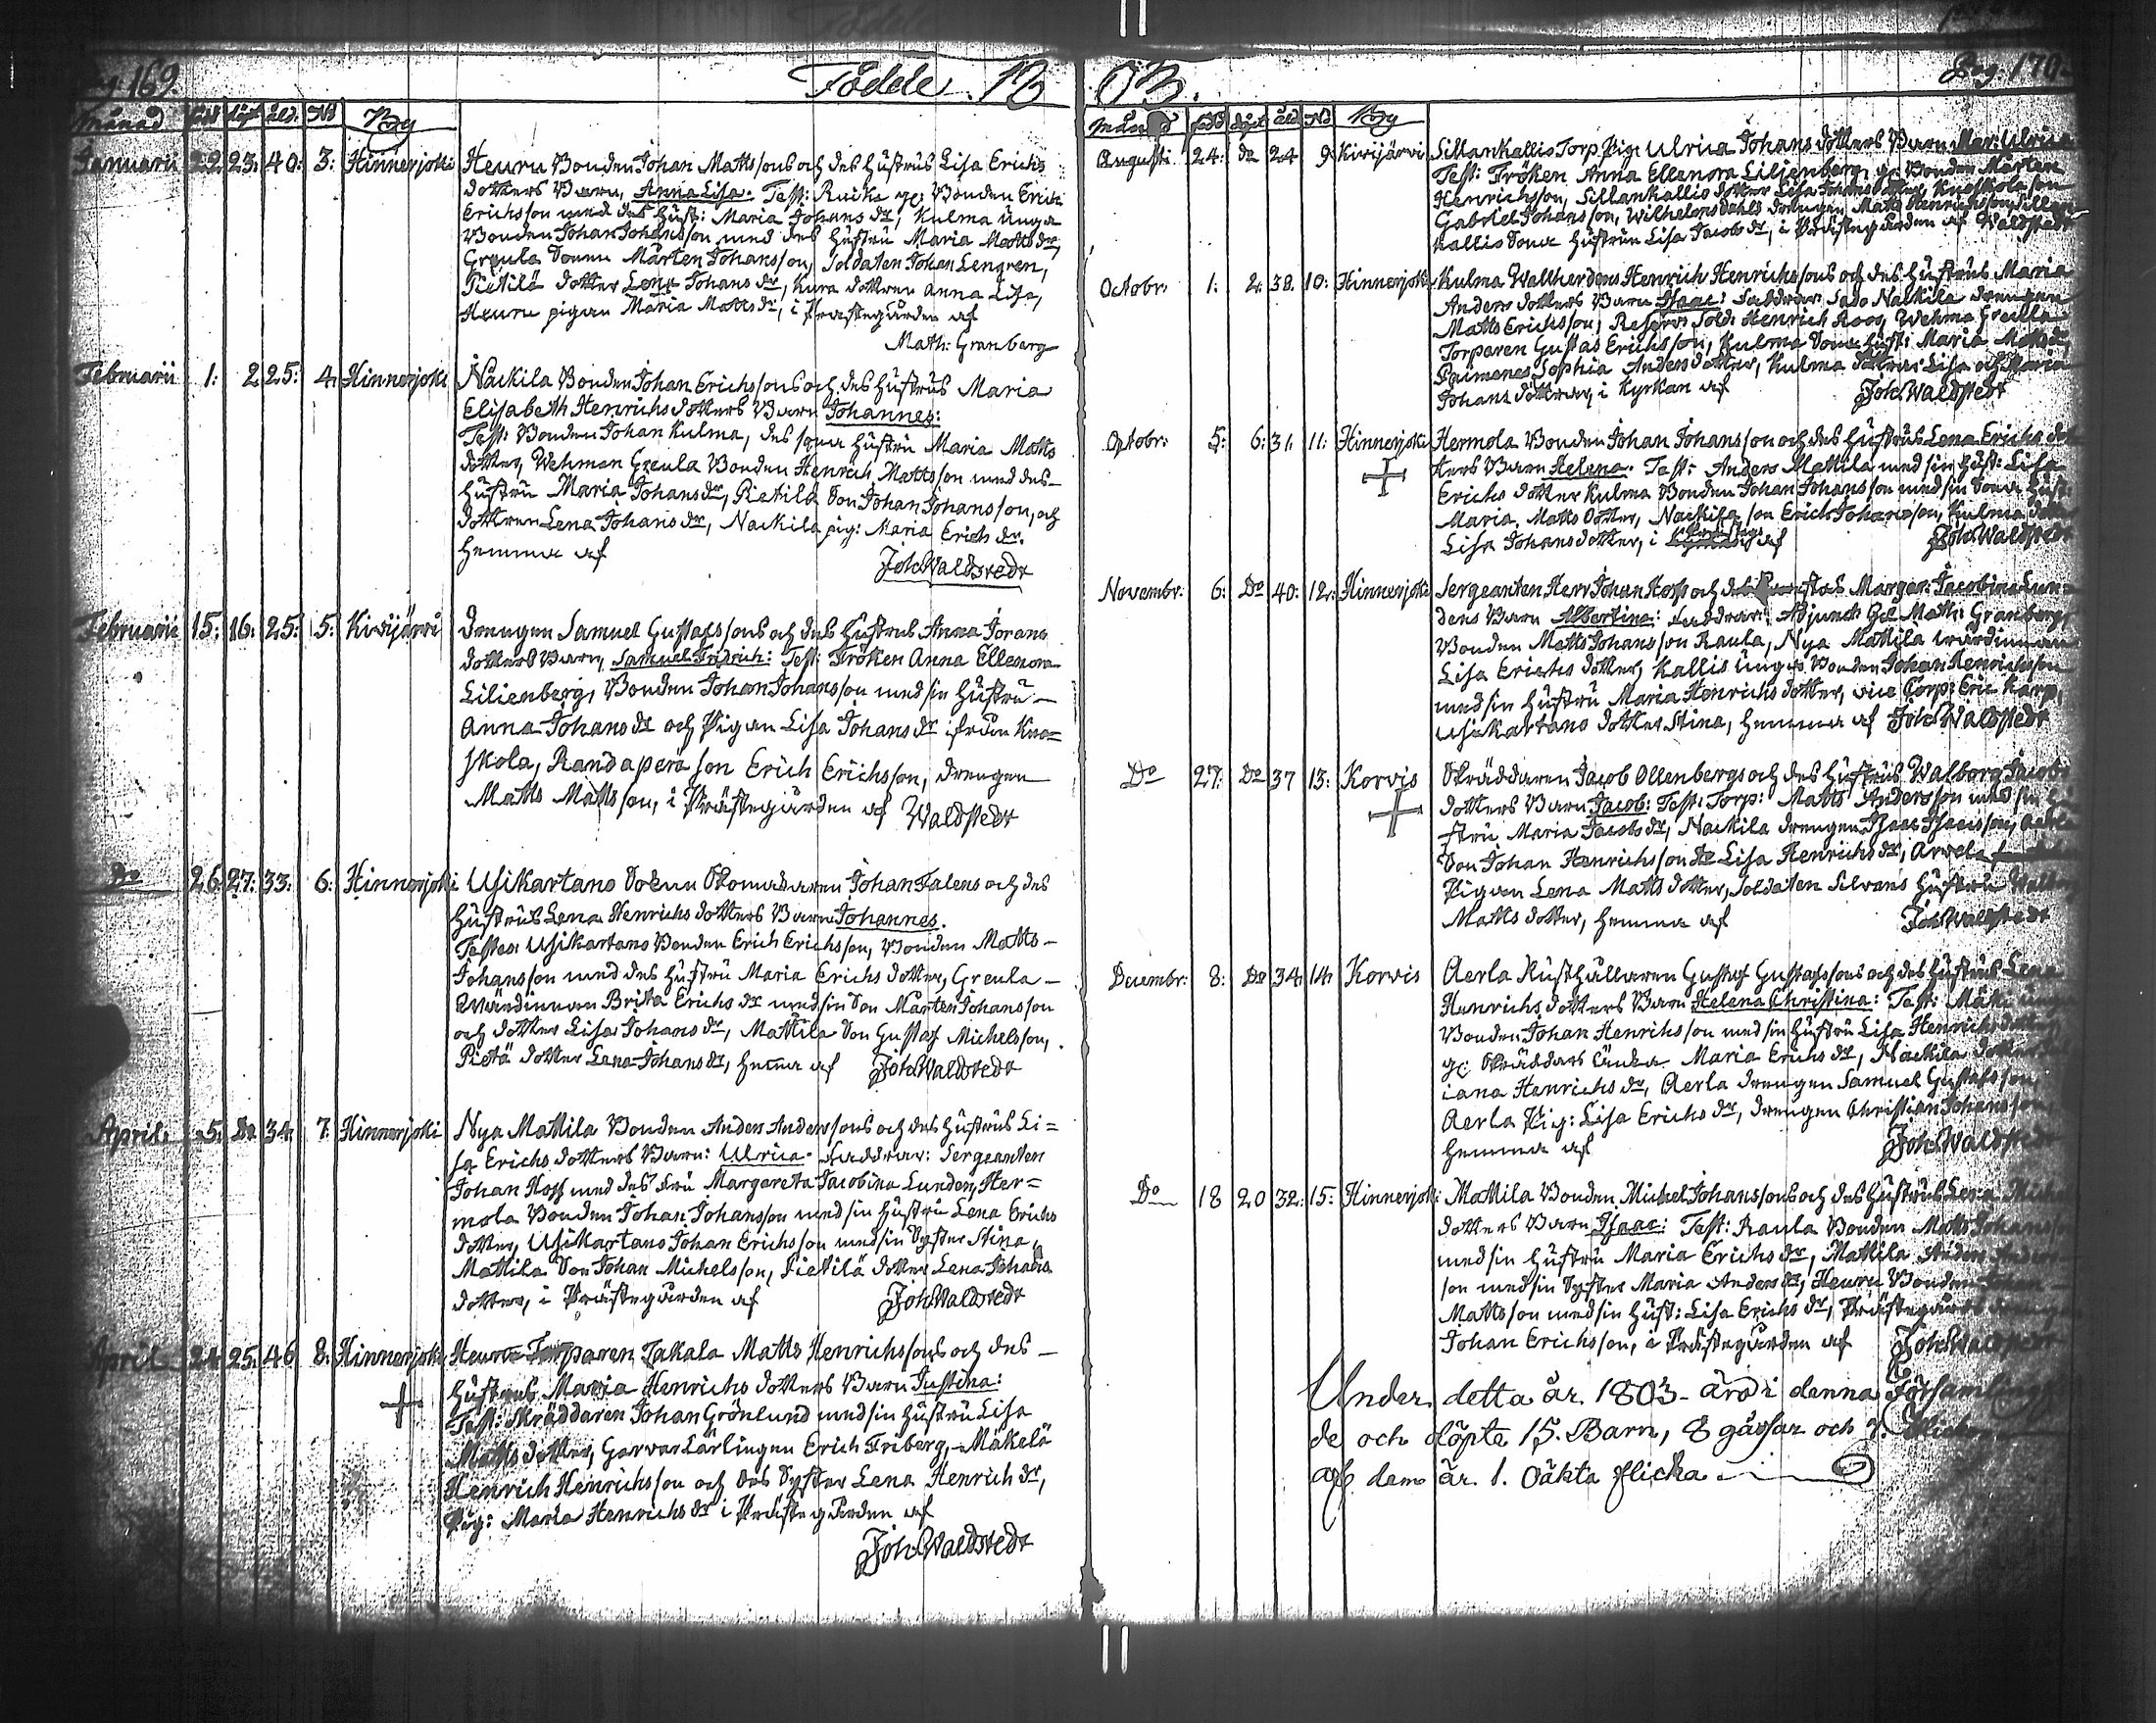 169.
Födde 18
Månad födt döpt åld. No By
Januarii 22. 23. 40. 3. Hinnerjoki Heuru Bonden Johan Mattssons och des hustrus Lisa Erichs
dotters Barn, Anna Lisa. Test: Bonden Erich
Erichsson med des hust: Maria Johans dr, Kulma unga
Bonden Johan Johansson med des hustru Maria Matts dr,
Greula Sonen Mårten Johansson, Soldaten Johan Lengren,
Pietilä dotter Lena Johans dr, Kura dottren Anna Lisa,
Heuru pigan Maria Matts dr, i Prästegården af
Math: Granberg
Februarii 1: 2 25: 4. Hinnerjoki Näckilä Bonden Johan Erichssons och des hustrus Maria
Elisabeth Henrichs dotters Barn Johannes:
Test: Bonden Johan Kulma, des sons hustru Maria Matts
dotter, Wehman Greula Bonden Henrich Mattsson med des
hustru Maria Johans dr, Pietilä Son Johan Johansson, och
dottren Lena Johans dr, Nackila pig: Maria Erich dr.
hemma af
Joh. Waldstedt
Februarii 15: 16: 25: 5: Kivijärvi Drengen Samuel Gustafssons och des hustrus Anna Jorans
dotters Barn, Samuel Fridrich: Test: Fröken Anna Ellenora
Lilienberg, Bonden Johan Johansson med sin hustru
Anna Johans dr och Pigan Lisa Johans dr ifrån Kno=
skola, Randaperä son Erich Erichsson, drengen
Matts Mattsson, i Prästegården af Waldstedt
Do 26. 27. 33: 6: Hinnerjoki Usikartano Sokn Skomakaren Johan Falens och des
hustrus Lena Henrichs dotters Barn Johannes.
Testes: Usikartano Bonden Erich Erichsson, Bonden Matts
Johansson med des hustru Maria Erichs dotter, Greula
Wärdinnan Brita Erichs dr med sin Son Mårten Johansson
och dotter Lisa Johans dr, Mattila Son Gustaf Michelsson,
Pietä dotter Lena Johans dr, hema af Joh. Waldstedt
April. 5. Do 34. 7. Hinnerjoki Nya Mattila Bonden Anders Anderssons och des hustrus Li=
sa Erichs dotters Barn: Ulrica. Faddrar: Sergeanten
Johan Hoff med des Fru Margareta Jacobina Lunden, Her=
mola Bonden Johan Johansson med sin hustru Lena Erichs
dotter, Usikartano Johan Erichsson med sin Syster Stina,
Mattila Son Johan Michelsson, Pietilä dotter Lena Johans
dotter, i Prästegården af Joh Waldstedt
April 24. 25. 46 8. Hinnerjoki Heuru Torparen Takala Matts Henrichssons och des
+ hustrus Maria Henrichs dotters Barn Justina:
Test: Skräddaren Johan Grönlund med sin hustru Lisa
Matts dotter, Garvar Lärlingen Erich Friberg, Mäkelä
Henrich Henrichsson och des Syster Lena Henrich dr,
Pig: Maria Henrichs dr i Prästegården af
Joh. Waldstedt
03. Pag. 170.
Månad födt döpt åld No By
Augusti 24: do 24 9. Kivijärvi Sillankallis Torp Pig: Ulrica Johans dotters Barn Mar: Ulrica
Test: Fröken Anna Ellenora Lilienberg, gl Bonden Mårten
Henrichsson, Sillankallis dotter Lisa Johans dotter, Knoskola son
Gabriel Johansson, Wilhelmsdahls drengen Matts Henrichsson, Sillan-
kallis Sons hustrun Lisa Jacobs dr, i Prästegården af Waldstedt
Octobr: 1: 2. 38. 10: Hinnerjoki Kulma Wallherdens Henrich Henrichssons och des hustrus Maria
Anders dotters Barn Isaac: Faddrar: Sado Nackila drengen
Matts Erichsson, Reserv: Sold: Henrich Roos, Wehma Greula
Torparen Gustaf Erichsson, Kulma Sons hust: Maria Matts
Sophia Anders dotter, Kulma döttrar Lisa och Maria
Johans döttrar, i Kyrkan af Joh. Waldstedt
Octobr: 5: 6: 31. 11: Hinnerjoki Hermola Bonden Johan Johansson och des hustrus Lena Erichs dot
+ ters Barn Helena. Test: Anders Mattila med sin hust: Lisa
Erichs dotter Kulma Bonden Johan Johansson med sin Sons hust:
Maria Matts dotter, Nackila son Erich Johansson, Kulma dotter
Lisa Johans dotter, i af Joh. Waldstedt
Novembr: 6: Do 40: 12: Hinnerjoki Sergeanten Herr Johan Hoff och des Margar: Jacobina Lun=
dens Barn Albertina: Faddrar: Adjunct: Math: Granberg
Bonden Matts Johansson Raula, Nya Mattila wärdinnan
Lisa Erichs dotter, Kallis unga Bonden Johan Henrichsson
med sin hustru Maria Henrichs dotter, vice Corp: Eric Karp,
Usikartano dotter Stina, hemma af Joh. Waldstedt
Do 27. Do 37 13: Korvis Skräddaren Jacob Ollenbergs och des hustrus Walborg Jacobs
+ dotters Barn Jacob: Test: Torp: Matts Andersson med sin hu
stru Maria Jacobs dr, Nackila drengen Isaac Isacsson, Aerla
Son Johan Henrichsson Lisa Henrichs dr, Arvela
Pigan Lena Matts dotter, Soldaten Silvans hustru Walborg
Matts dotter, hemma af Joh. Waldstedt
Decembr: 8: Do 34 14. Korvis Aerla Rusthållaren Gustaf Gustafssons och des hustrus Lena
Henrichs dotters Barn Helena Christina: Test: Mäki unga
Bonden Johan Henrichsson med sin hustru Lisa Henrichs dotter
gl: Skräddars Enka Maria Erichs dr, Nackila dotter
iana Henrichs dr, Aerla drengen Samuel Gustafsson
Aerla Pig: Lisa Erichs dr, drengen Christian Johansson
hemma af Joh. Waldstedt
Do 18 20 32: 15: Hinnerjoki Mattila Bonden Michel Johanssons och des hustrus Lena
dotters Barn Isaac: Test: Raula Bonden Matts Johans
med sin hustru Maria Erichs dr, Mattila Anders Anders
son med sin Syster Maria Anders dr, Heuru Bonden
Mattsson med sin hust: Lisa Erichs dr, Prästegårds
Johan Erichsson, i Prästegården af Joh. Waldstedt
Under detta år 1803 äro i denna Församling
de och döpte 15. Barn, 8 gåssar och 7. Flickor
af dem är 1. Oäkta flicka